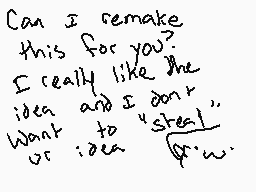 Can I remake
this for you?
I really like the
idea and I don't
want to "steal"
ur idea